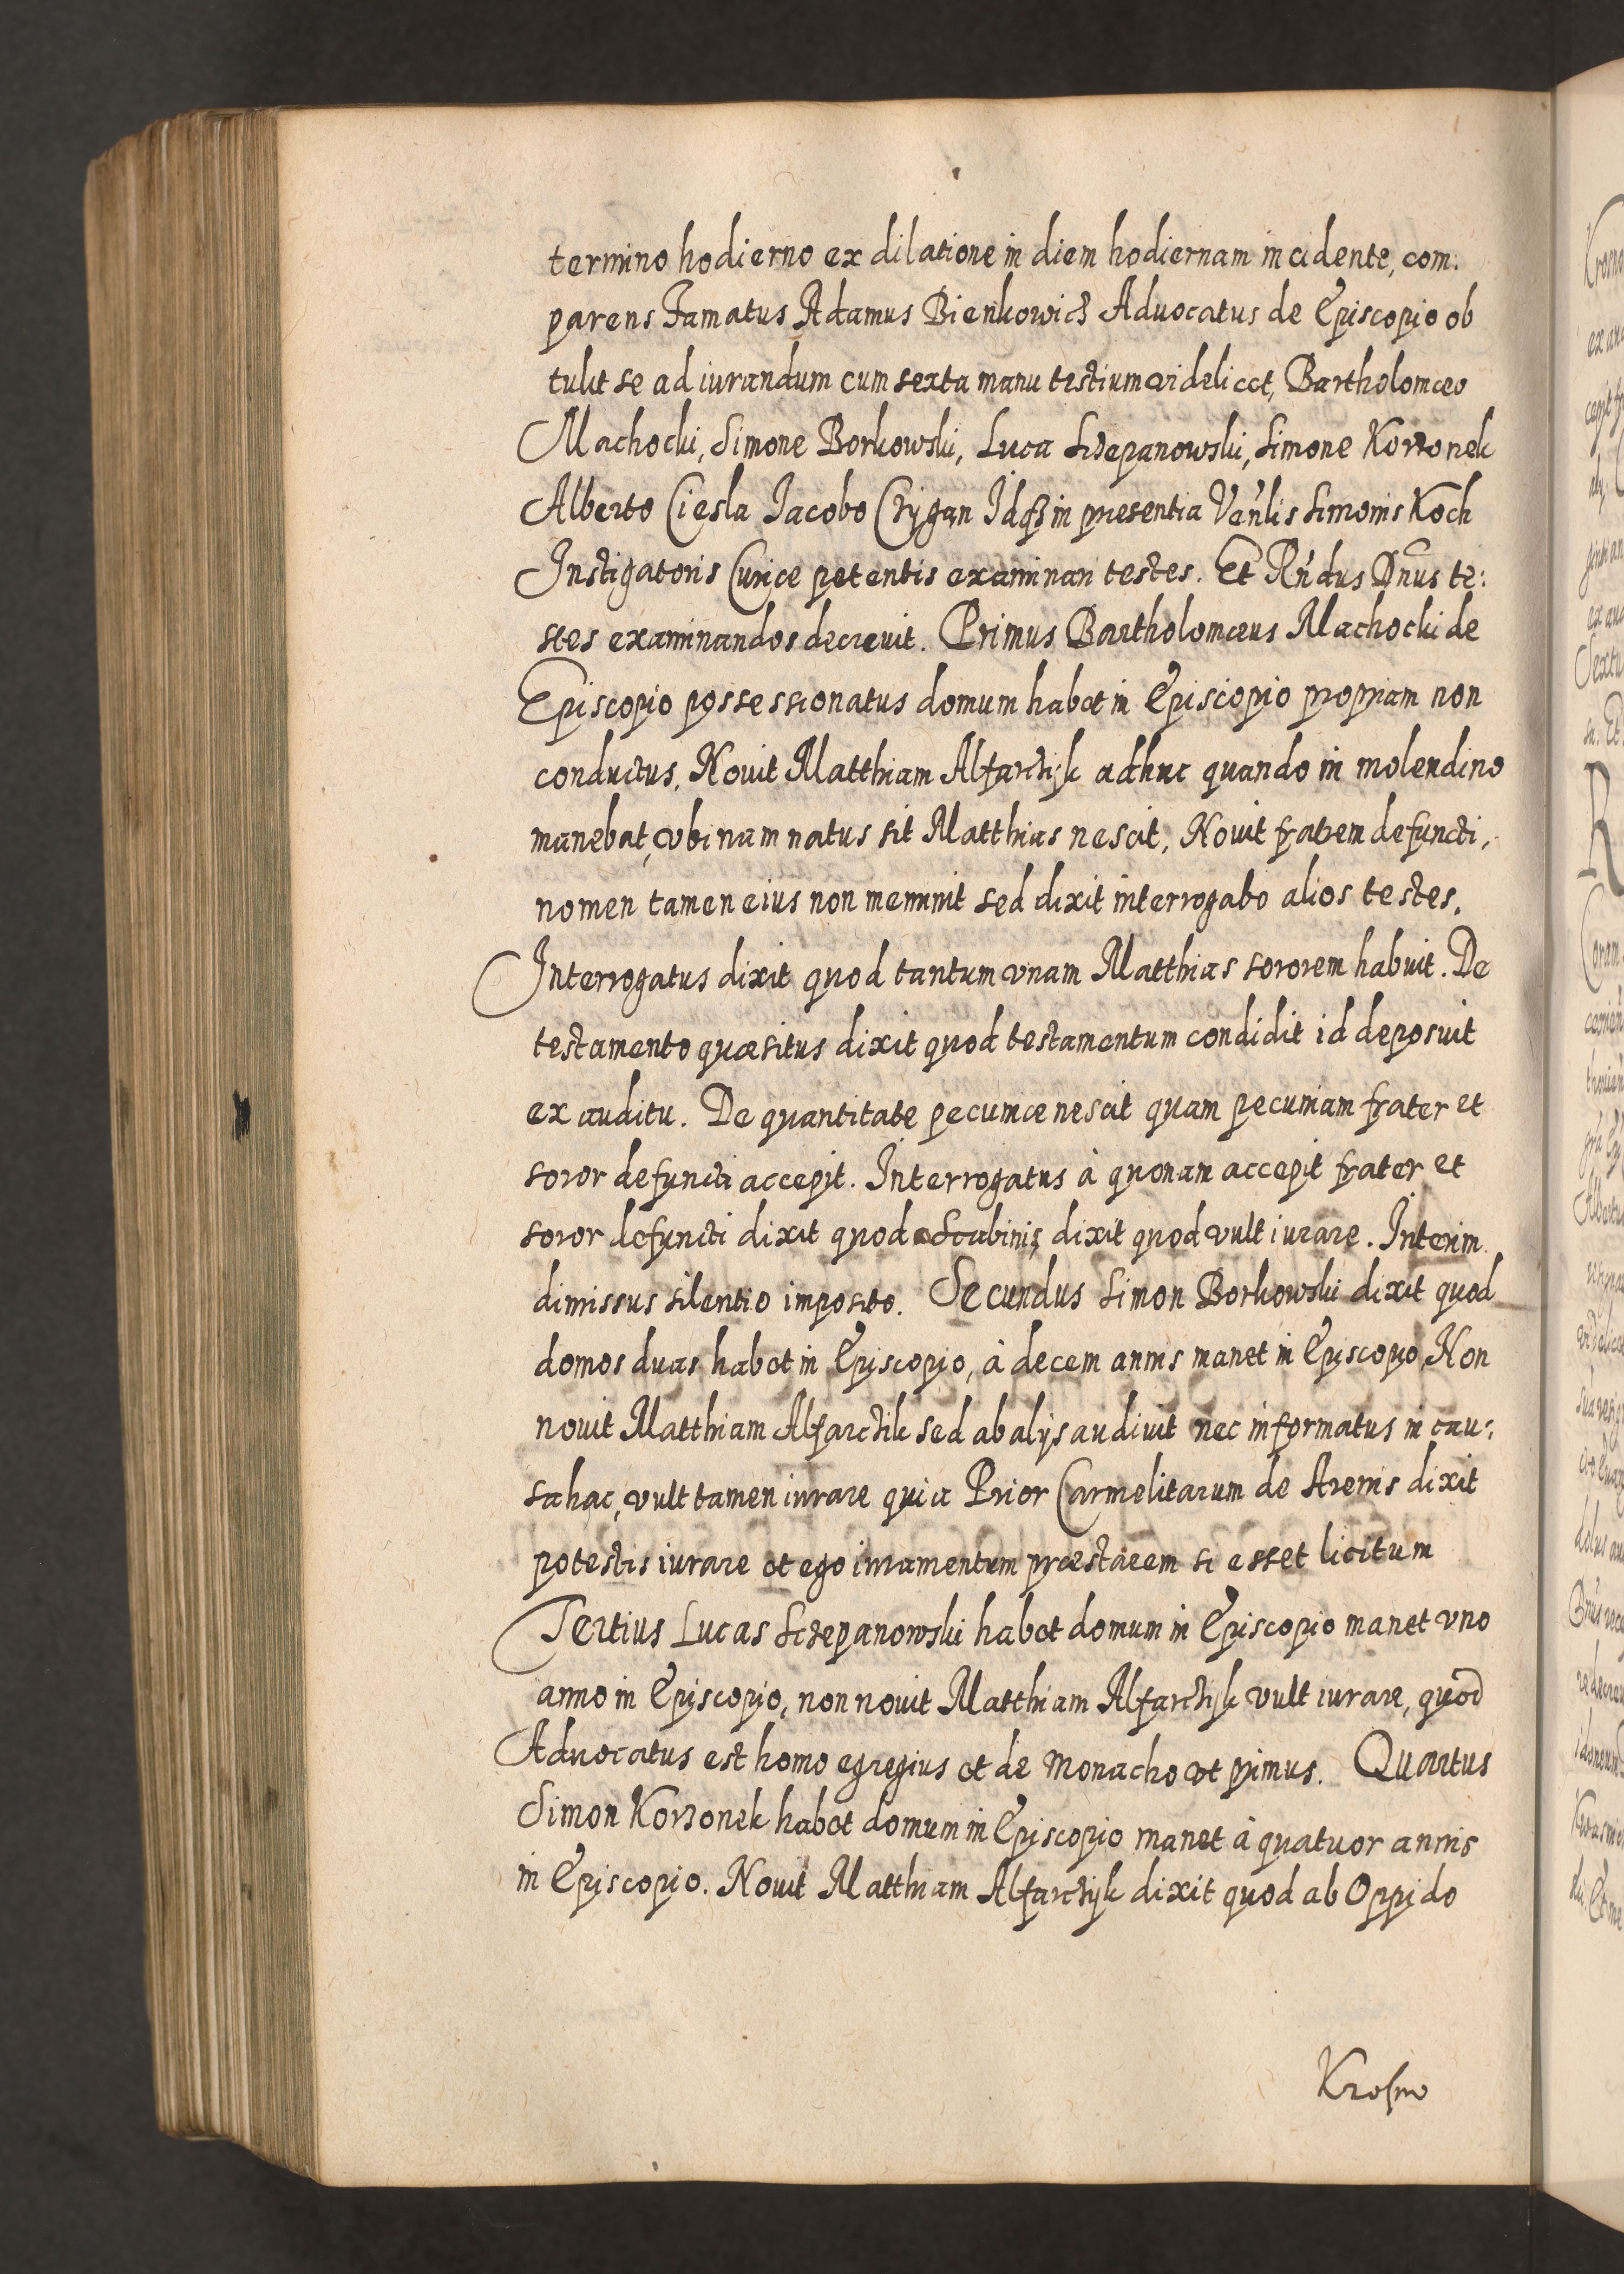 termino hodierno ex dilatione in diem hodiernam incidente, com:
parens Famatus Adamus Bienkowicz Aduocatus de Episcopio ob
tulit se ad iurandum cum sexta manu testium videlicet, Bartholomæo
Machocki, Simone Borkowski, Luca Sczepanowski, Simone Korzonek
Alberto Ciesla Jacobo Czygan Idq3 in presentia Venlis Simonis Koch
Instigatoris Curiæ petentis examinari testes. Et Rndus Dnus te:
stes examinandos decreuit. Primus Bartholomæus Machocki de
Episcopio possessionatus domum habet in Episcopio propriam non
conductus. Nouit Matthiam Alfarczyk adhuc quando in molendino
manebat, vbinam natus sit Matthias nescit, Nouit fratrem defuncti,
nomen tamen eius non meminit sed dixit interrogabo alios testes.
Interrogatus dixit quod tantum vnam Matthias sororem habuit. De
testamento quæsitus dixit quod testamentum condidit id deposuit
ex auditu. De quantitate pecuniæ nescit quam pecuniam frater et
soror defuncti accepit. Interrogatus à quonam accepit frater et
soror defuncti dixit quod a Scabinis dixit quod vult iurare. Interim
dimissus silentio imposito. Secundus Simon Borkowski dixit quod
domos duas habet in Episcopio, à decem annis manet in Episcopio, Non
nouit Matthiam Alfarczik sed ab alijs audiuit nec informatus in cau:
sa hac, vult tamen iurare quia Prior Carmelitarum de Arenis dixit
potestis iurare et ego iuramentum præstarem si esset licitum
Tertius Lucas Sczepanowski habet domum in Episcopio manet vno
anno in Episcopio, non nouit Matthiam Alfarczyk vult iurare, quod
Aduocatus est homo egregius et de Monacho vt primus. Quartus
Simon Korzonek habet domum in Episcopio manet à quatuor annis
in Episcopio. Nouit Matthiam Alfarczyk dixit quod ab Oppido
Krosno